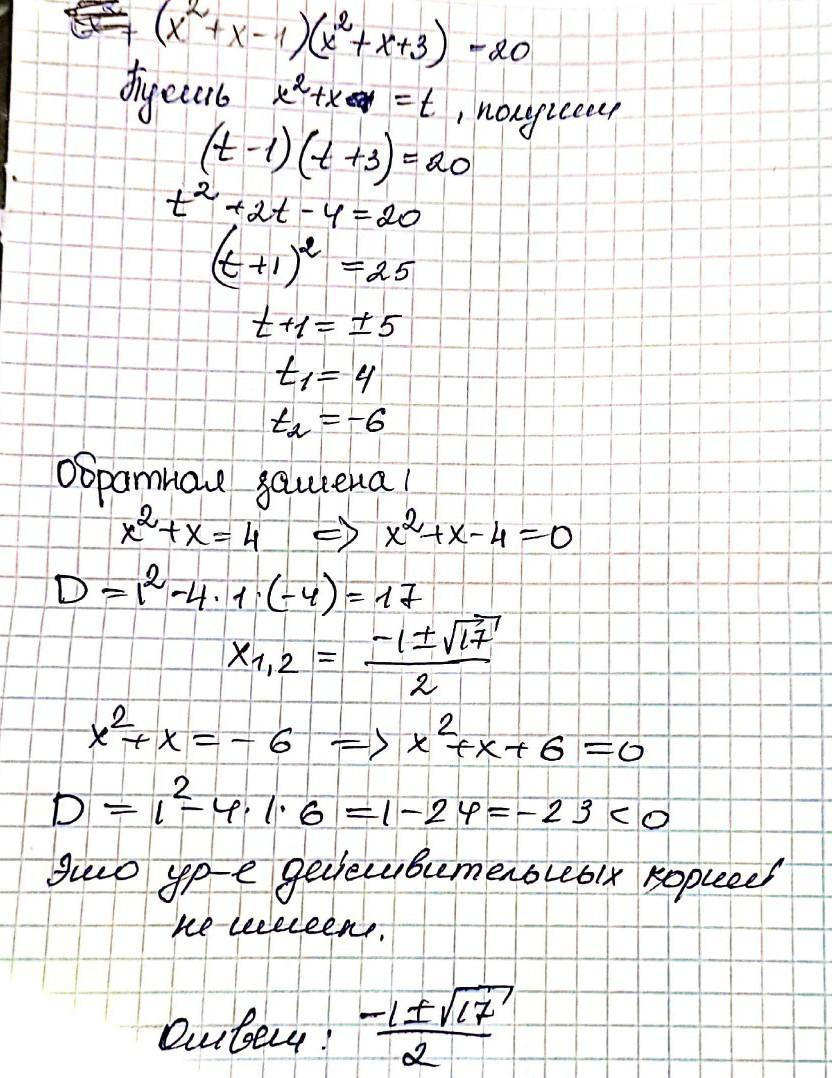 (x²+x-1)(x²+x+3) -20
Пусть x²+x = t, получим
(t-1)(t+3)=20
t²+2t-4=20
(t+1)² =25
t+1=±5
t₁=4
t₂=-6
Обратная замена!
x²+x=4 => x²+x-4=0
D=1²-4·1·(-4)=17
x₁,₂ = (-1±√17)/2
x²+x=-6 => x²+x+6=0
D=1²-4·1·6=1-24=-23<0
Это ур-е действительных корней
не имеет.
Ответ: (-1±√17)/2